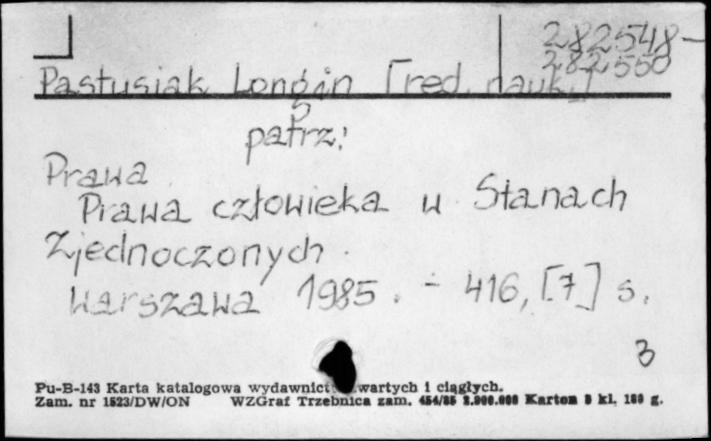 282548-
282550
Pastusiak Longin [red. nauk.]
patrz:
Prawa
Prawa człowieka w Stanach
Zjednoczonych.
Warszawa 1985. - 416, [7] s.
3
Pu-B-143 Karta katalogowa wydawnict wartych i ciągłych.
Zam. nr 1523/DW/ON WZGraf Trzebnica zam. 454/85 2.000.000 Karton 3 kl. 180 g.